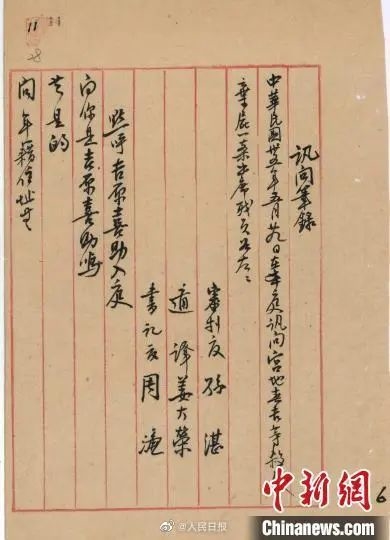 11
28
訊問筆錄
中華民國卅五年五月廿九日在本庭訊問宮地春吉等殺人
棄屍一案出席職員如左：
審判官 孫湛
通譯 姜大榮
書記官 周濂
點呼吉原喜助入庭
問你是吉原喜助嗎
答是的
問年籍住址等
6
中新網
Chinanews.com
@人民日报